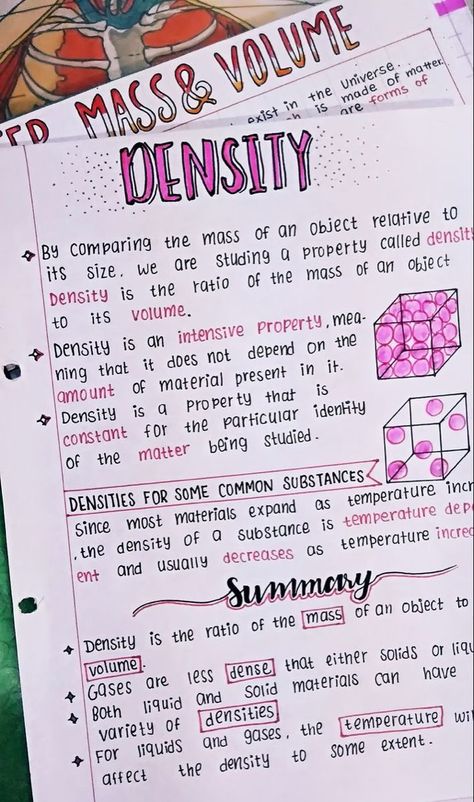 MASS & VOLUME
exist in the Universe.
is made of matter.
are forms of
DENSITY
By comparing the mass of an object relative to
its size, we are studing a property called densit
Density is the ratio of the mass of an object
to its volume.
Density is an intensive property, mea-
ning that it does not depend on the
amount of material present in it.
Density is a property that is
constant for the particular identity
of the matter being studied.
DENSITIES FOR SOME COMMON SUBSTANCES
Since most materials expand as temperature incr
, the density of a substance is temperature depe
ent and usually decreases as temperature increa
Summary
Density is the ratio of the mass of an object to
volume.
Gases are less dense that either solids or liqu
Both liquid and solid materials can have
variety of densities
For liquids and gases, the temperature wi
affect the density to some extent.